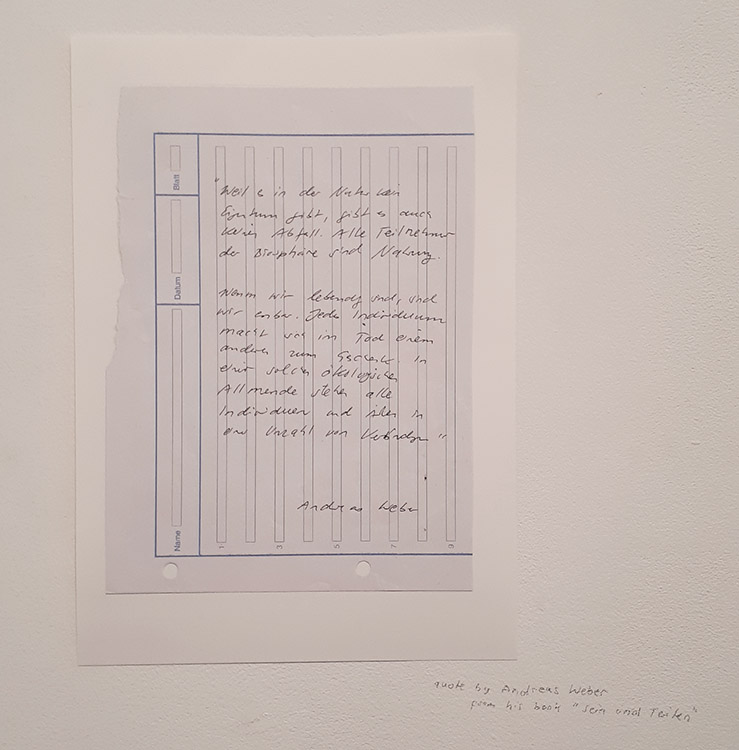 "Weil es in der Natur kein
Eigentum gibt, gibt es auch
keinen Abfall. Alle Teilnehmer
der Biosphäre sind Nahrung.
wir lebendig sind, sind
wir essbar. Jedes Individuum
macht sich im Tod einem
anderen zum Geschenk. In
einer solchen ökologischen
Allmende stehen alle
Individuen und in
einer Unzahl von "
Andreas Weber
Blatt
Datum
Name
1
3
5
7
9
quote by Andreas Weber
from his book "Sein und Teilen"